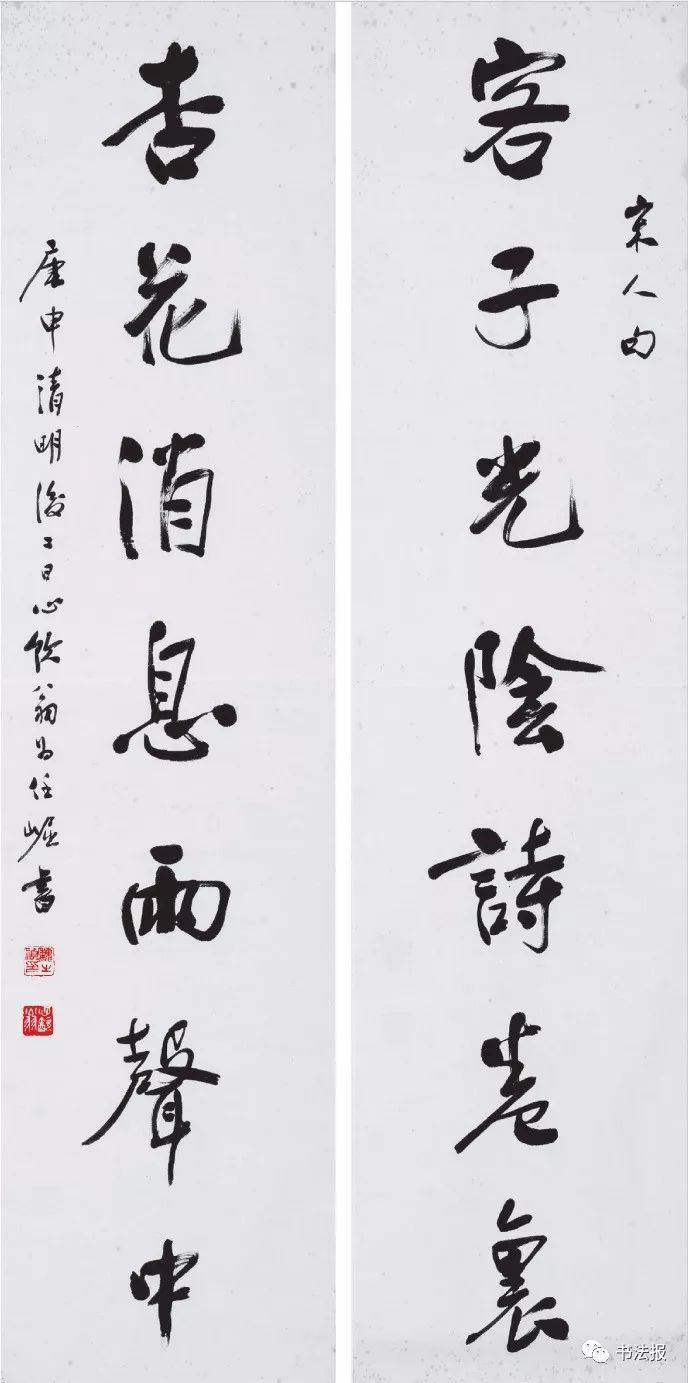 宋人句
客子光陰詩卷裏
杏花消息雨聲中
庚申清明後二日心翁任崛書
书法报